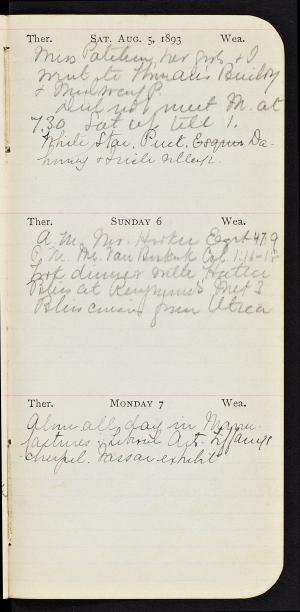 Ther. SAT. AUG. 5, 1893 Wea.
Miss Patchin, her girls & I
went to Woman's Building
&
Did not meet M. at
7.30 Sat up till 1.
White Star, Puct. Esquim Da-
homey & Irish village.
Ther. SUNDAY 6 Wea.
A.M. Mr. Hooker Ezek 47.9
P.M. Mr. Van Buskirk Col. 1:15-18
got dinner with Hattie
Bliss at Met 3
Bliss cousins from Utica
Ther. MONDAY 7 Wea.
Alone all day in Manu-
factures & Liberal Arts. Tiffany's
chapel. Vassar exhibit